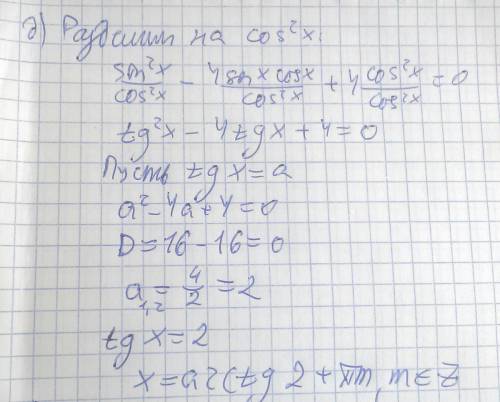 д) Разделим на cos²x:
sin²x/cos²x - 4 sinx cosx/cos²x + 4 cos²x/cos²x = 0
tg²x - 4tgx + 4 = 0
Пусть tg x = a
a² - 4a + 4 = 0
D = 16 - 16 = 0
a₁,₂ = 4/2 = 2
tg x = 2
x = arctg 2 + πn, n ∈ Z